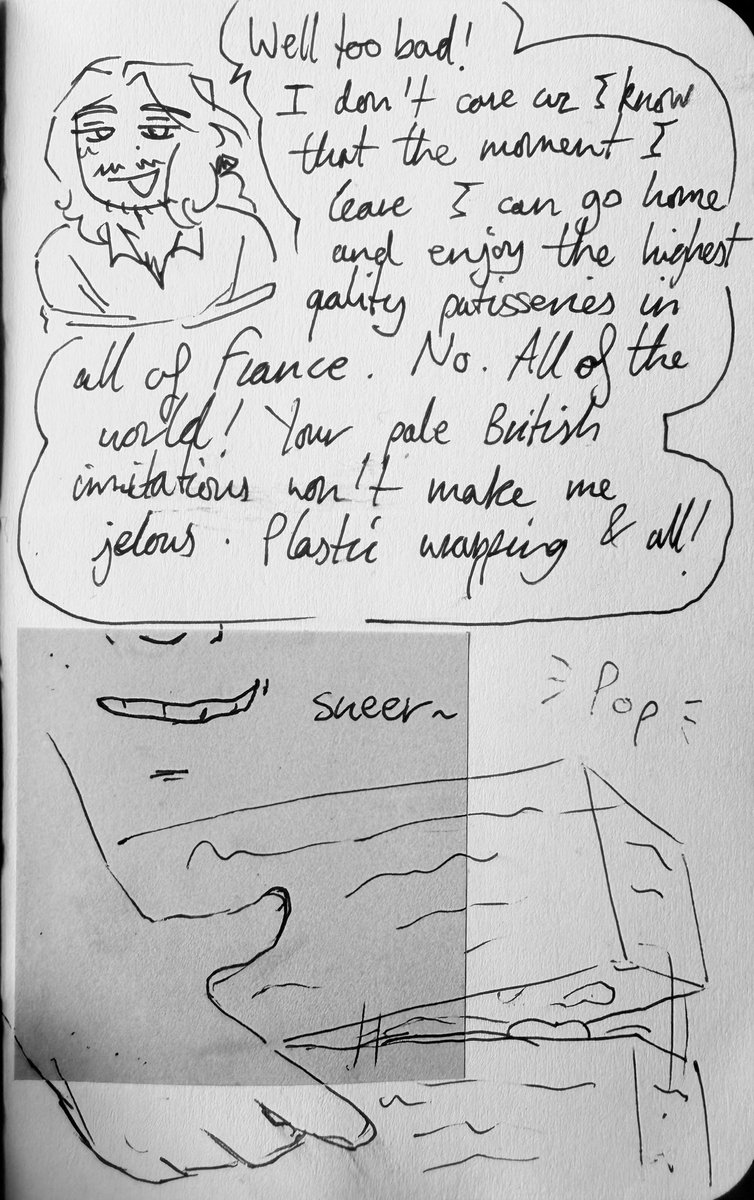 Well too bad!
I don't care cuz I know
that the moment I
leave I can go home
and enjoy the highest
qality patisseries in
all of France. No. All of the
world! Your pale British
immitations won't make me
jelous. Plastic wrapping & all!
sneer~
Pop